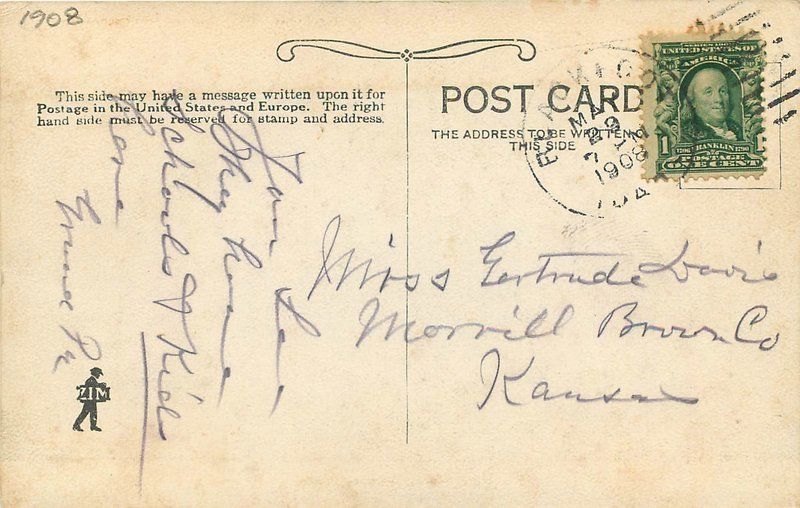 1908
This side may have a message written upon it for
Postage in the United States and Europe. The right
hand side must be reserved for stamp and address.
POST CARD
THE ADDRESS TO BE WRITTEN ON
THIS SIDE
MAY
1908
SERIES 1902
UNITED STATES OF
AMERICA
1
1706 FRANKLIN 1790
POSTAGE
ONE CENT
Miss Gertrude Davis
Morrill Brown Co
Kansas
They have
Schools &
Love
ZIM